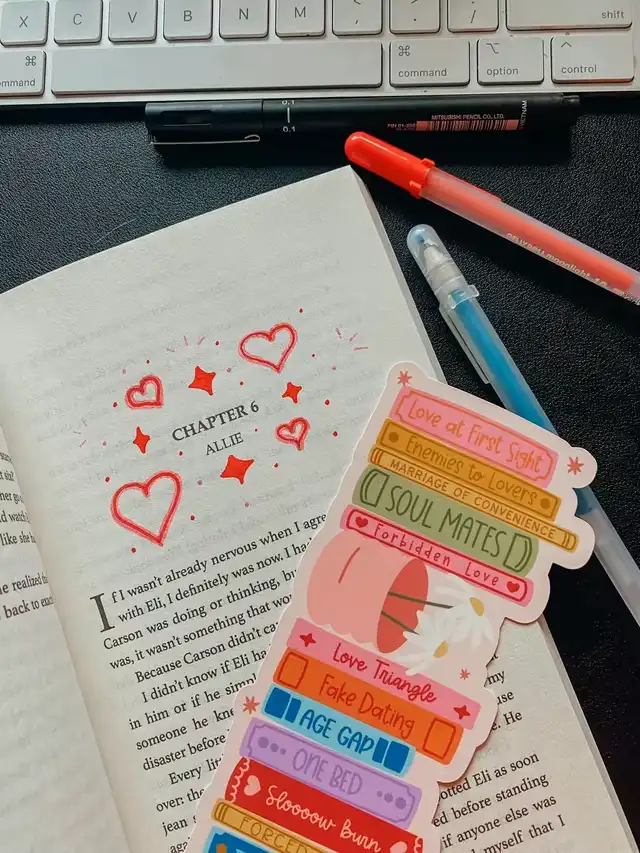 X C V B N M < , > . ? /
shift
command ⌘ ⌘ command ⌥ option ^ control
0.1
0.1
MITSUBISHI PENCIL CO., LTD.
VIETNAM
CHAPTER 6
ALLIE
If I wasn't already nervous when I agre
with Eli, I definitely was now. I ha
Carson was doing or thinking, bu
was, it wasn't something that wou
Because Carson didn't ca
I didn't know if Eli ha
in him or if he simp
someone he kne
disaster before
Every lit
over: the
jean
aga
like she
he realized
back to
my
use
He
otted Eli as soon
ed before standing
if anyone else was
myself that I
Love at First Sight
Enemies to Lovers
MARRIAGE OF CONVENIENCE
SOUL MATES
Forbidden Love
Love Triangle
Fake Dating
AGE GAP
ONE BED
Sloooow Burn
FORCED